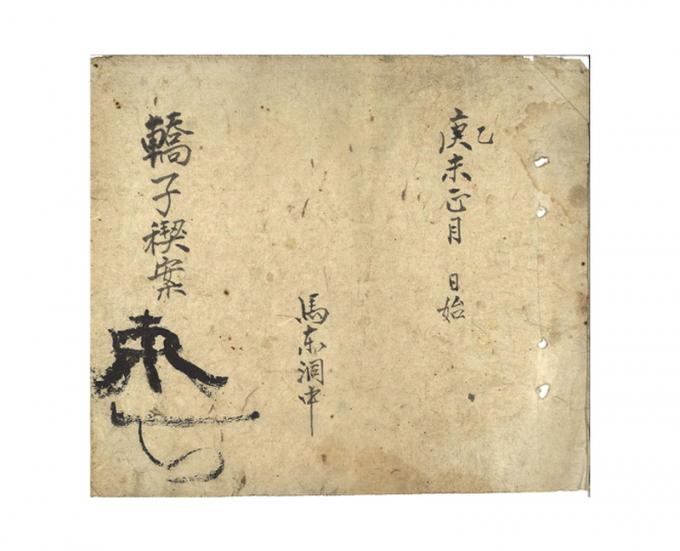 乙
庚未正月 日始
馬東洞中
轎子稧案